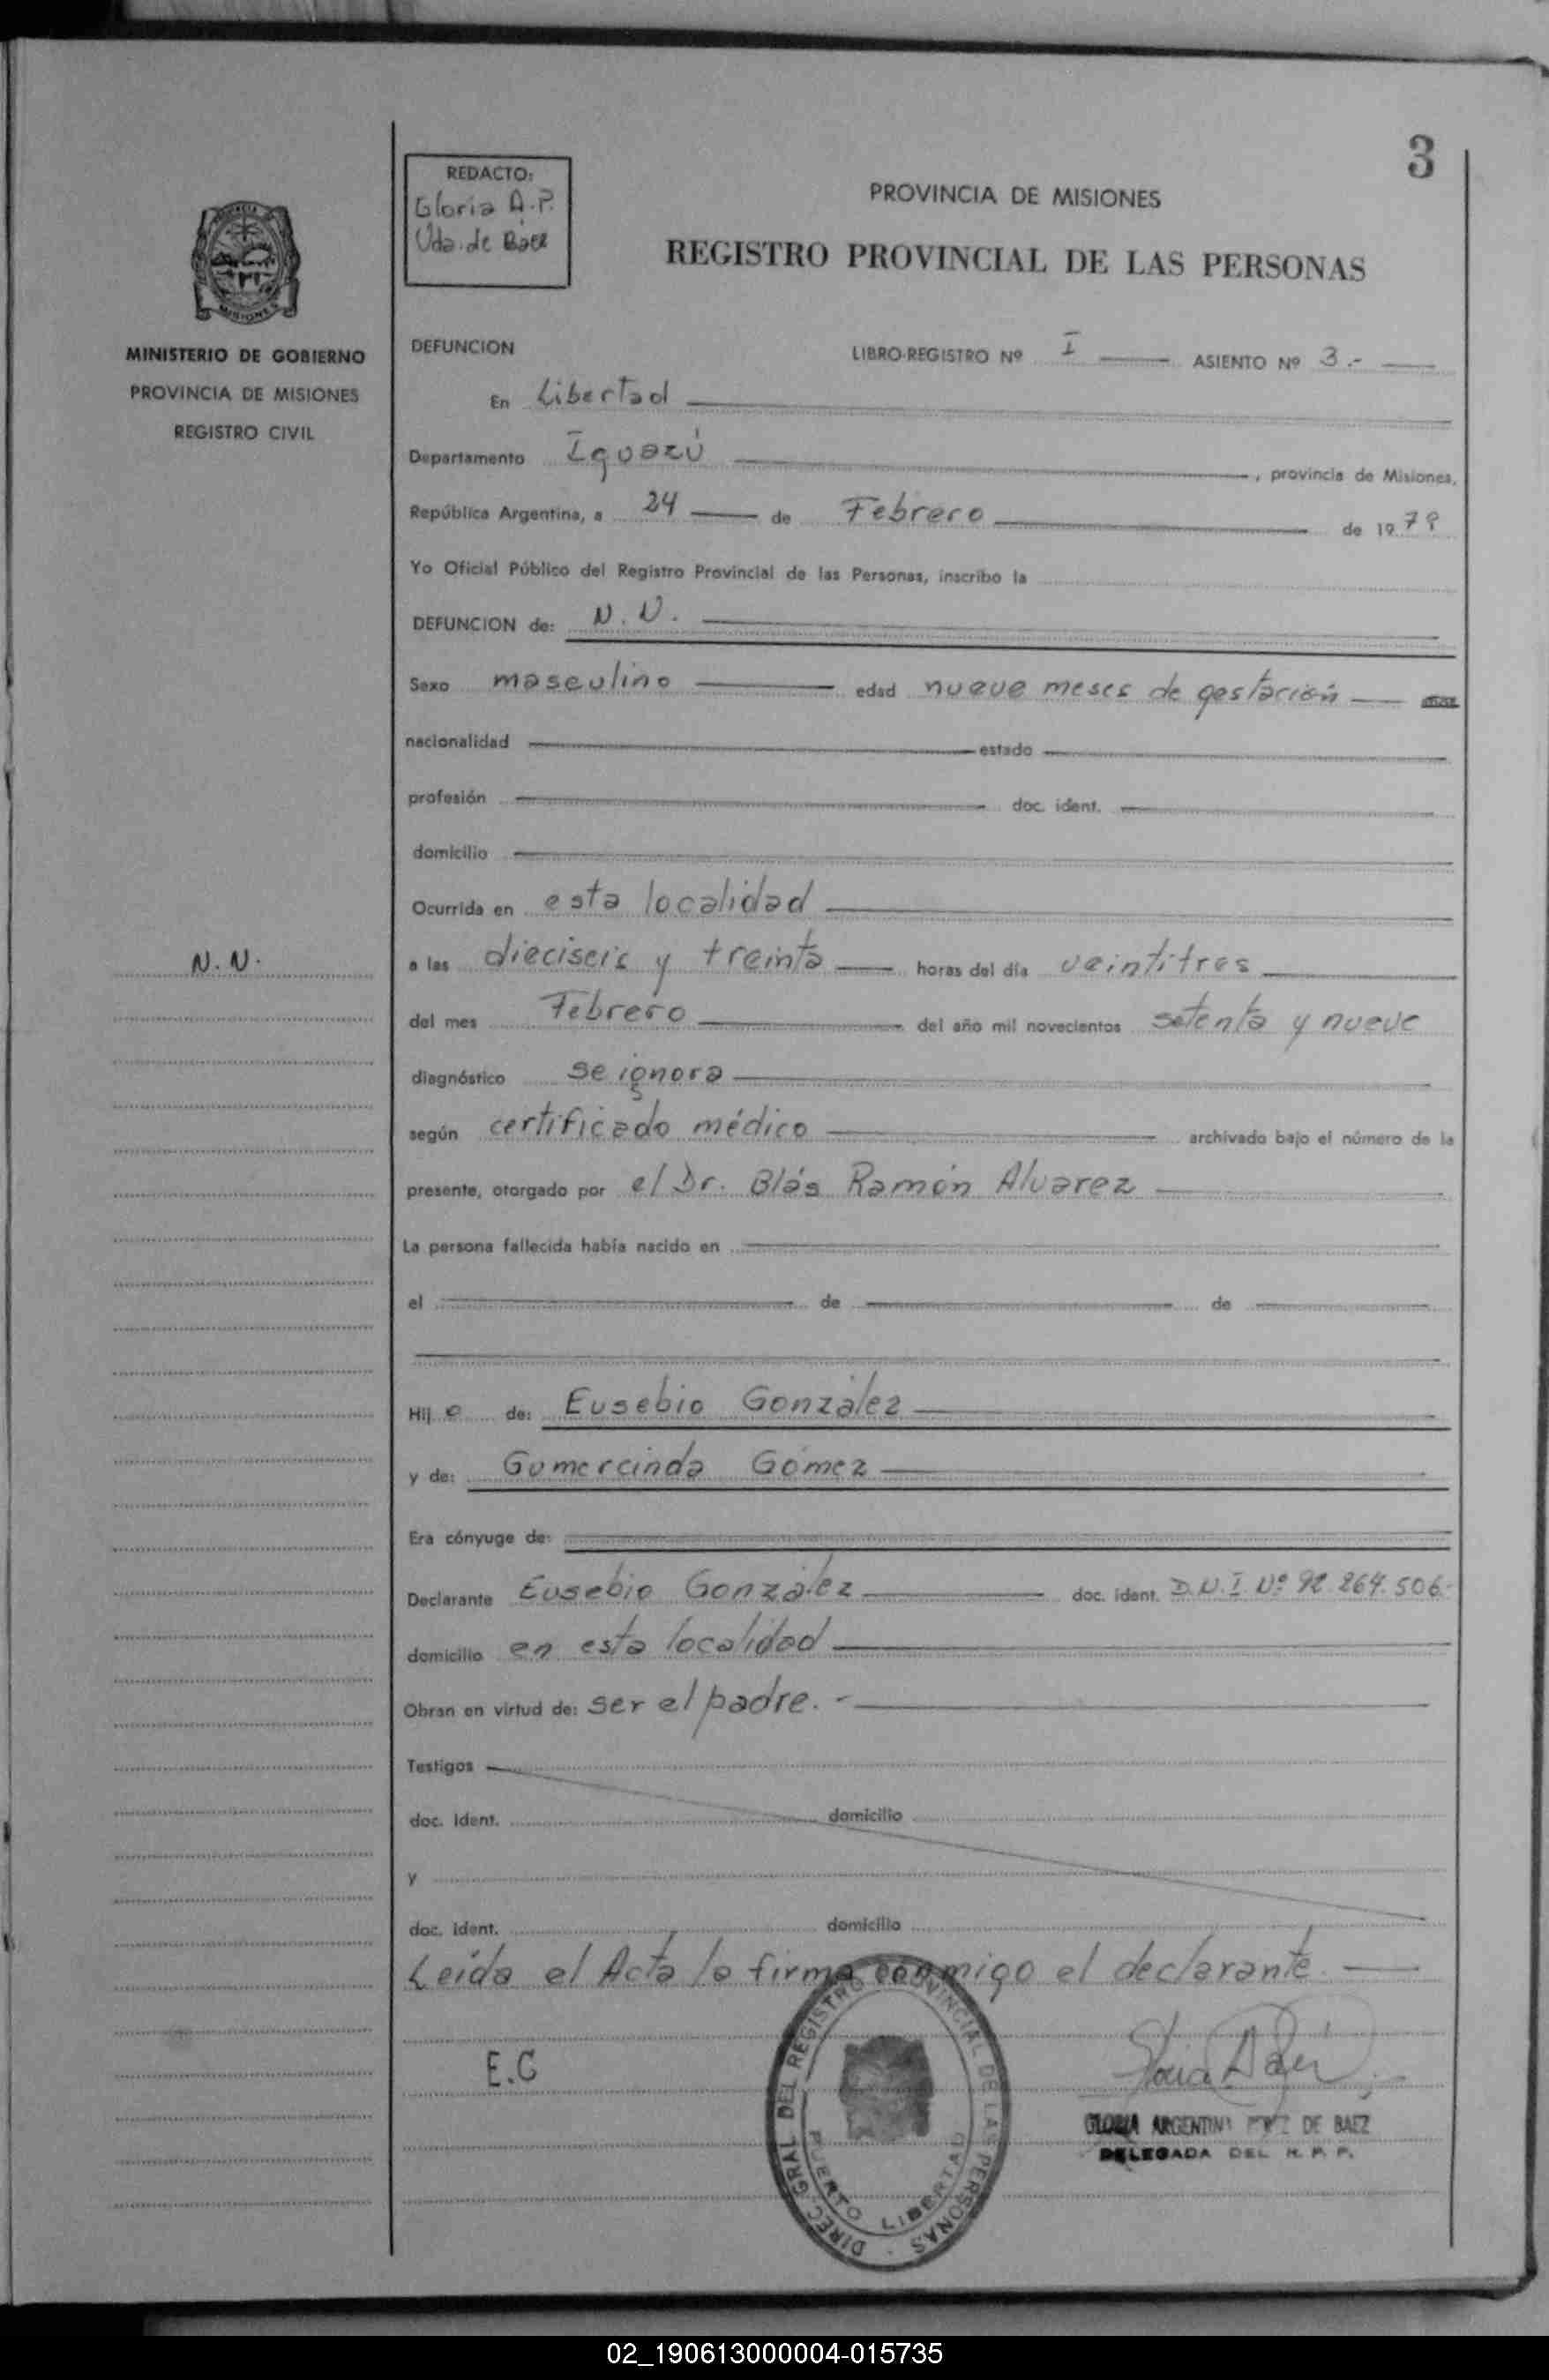 3
REDACTO:
Gloria A.P.
Vda. de Baez
PROVINCIA DE MISIONES
REGISTRO PROVINCIAL DE LAS PERSONAS
MINISTERIO DE GOBIERNO
PROVINCIA DE MISIONES
REGISTRO CIVIL
DEFUNCION LIBRO-REGISTRO Nº I ASIENTO Nº 3.-
En Libertad
Departamento Iguazú, provincia de Misiones,
República Argentina, a 24 de Febrero de 1979
Yo Oficial Público del Registro Provincial de las Personas, inscribo la
DEFUNCION de: N.N.
Sexo masculino edad nueve meses de gestación
nacionalidad estado
profesión doc. ident.
domicilio
Ocurrida en esta localidad
N.N.
a las dieciseis y treinta horas del día veintitres
del mes Febrero del año mil novecientos setenta y nueve
diagnóstico se ignora
según certificado médico archivado bajo el número de la
presente, otorgado por el Dr. Blás Ramón Alvarez
La persona fallecida había nacido en
el de de
Hijo de: Eusebio González
y de: Gumercinda Gómez
Era cónyuge de:
Declarante Eusebio González doc. ident. D.N.I Nº 92.264.506.-
domicilio en esta localidad
Obran en virtud de: ser el padre.-
Testigos
doc. ident. domicilio
y
doc. ident. domicilio
Leída el Acta la firma conmigo el declarante.
E.G
DIREC. GRAL. DEL REGISTRO PROVINCIAL DE LAS PERSONAS
PUERTO LIBERTAD
GLORIA ARGENTINA DE BAEZ
DELEGADA DEL R. P. P.
02_190613000004-015735